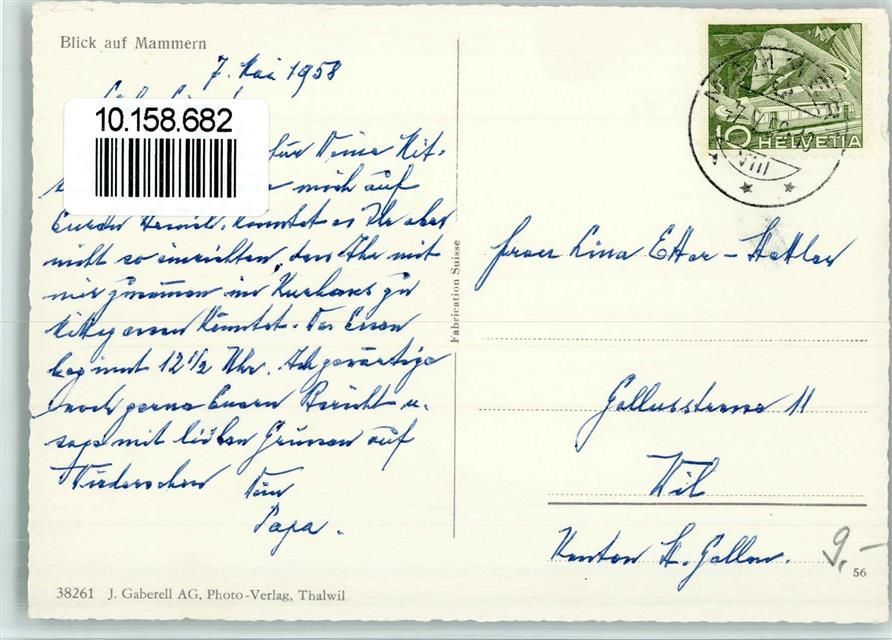 Blick auf Mammern
7. Mai 1958
10.158.682
für Deine Mit-
mich auf
Euren Besuch. Könntet es Ihr aber
nicht so einrichten, dass Ihr mit
mir zusammen im Kurhaus zu
Mittagessen könntet. Das Essen
beginnt 12 1/2 Uhr. Ich gewärtige
noch gerne Euern Bericht u.
sage mit lieben Grüssen auf
Wiedersehen Dein
Papa.
38261 J. Gaberell AG, Photo-Verlag, Thalwil
Fabrication Suisse
10 HELVETIA
Frau Lina Etter-
Gallusstrasse 11
Wil
Kanton St. Gallen.
9,-
56